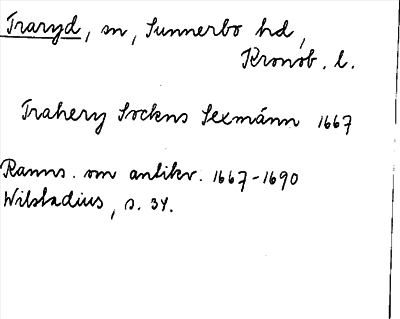 Traryd, sn, Sunnerbo hd,
Kronob. l.
Trahery Sockns Sexmánn 1667
Ranns. om antikv. 1667-1690
Wibstadius, s. 34.